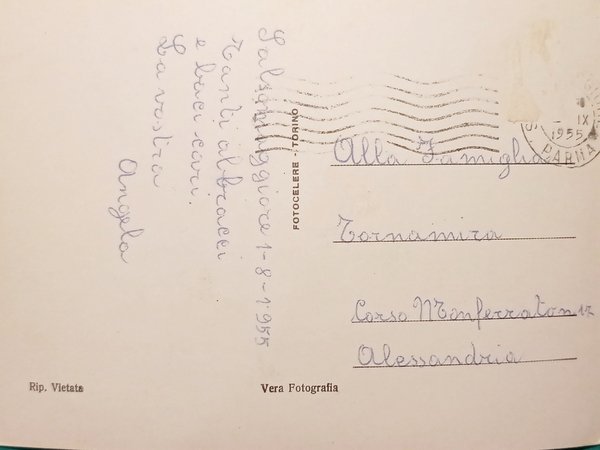 Salsomaggiore 1-8-1955
Tanti abbracci
e baci cari.
La vostra
Angela
FOTOCELERE - TORINO
IX
1955
PARMA
Alla Famiglia
Tornamira
Corso Monferrato n 17
Alessandria
Rip. Vietata
Vera Fotografia